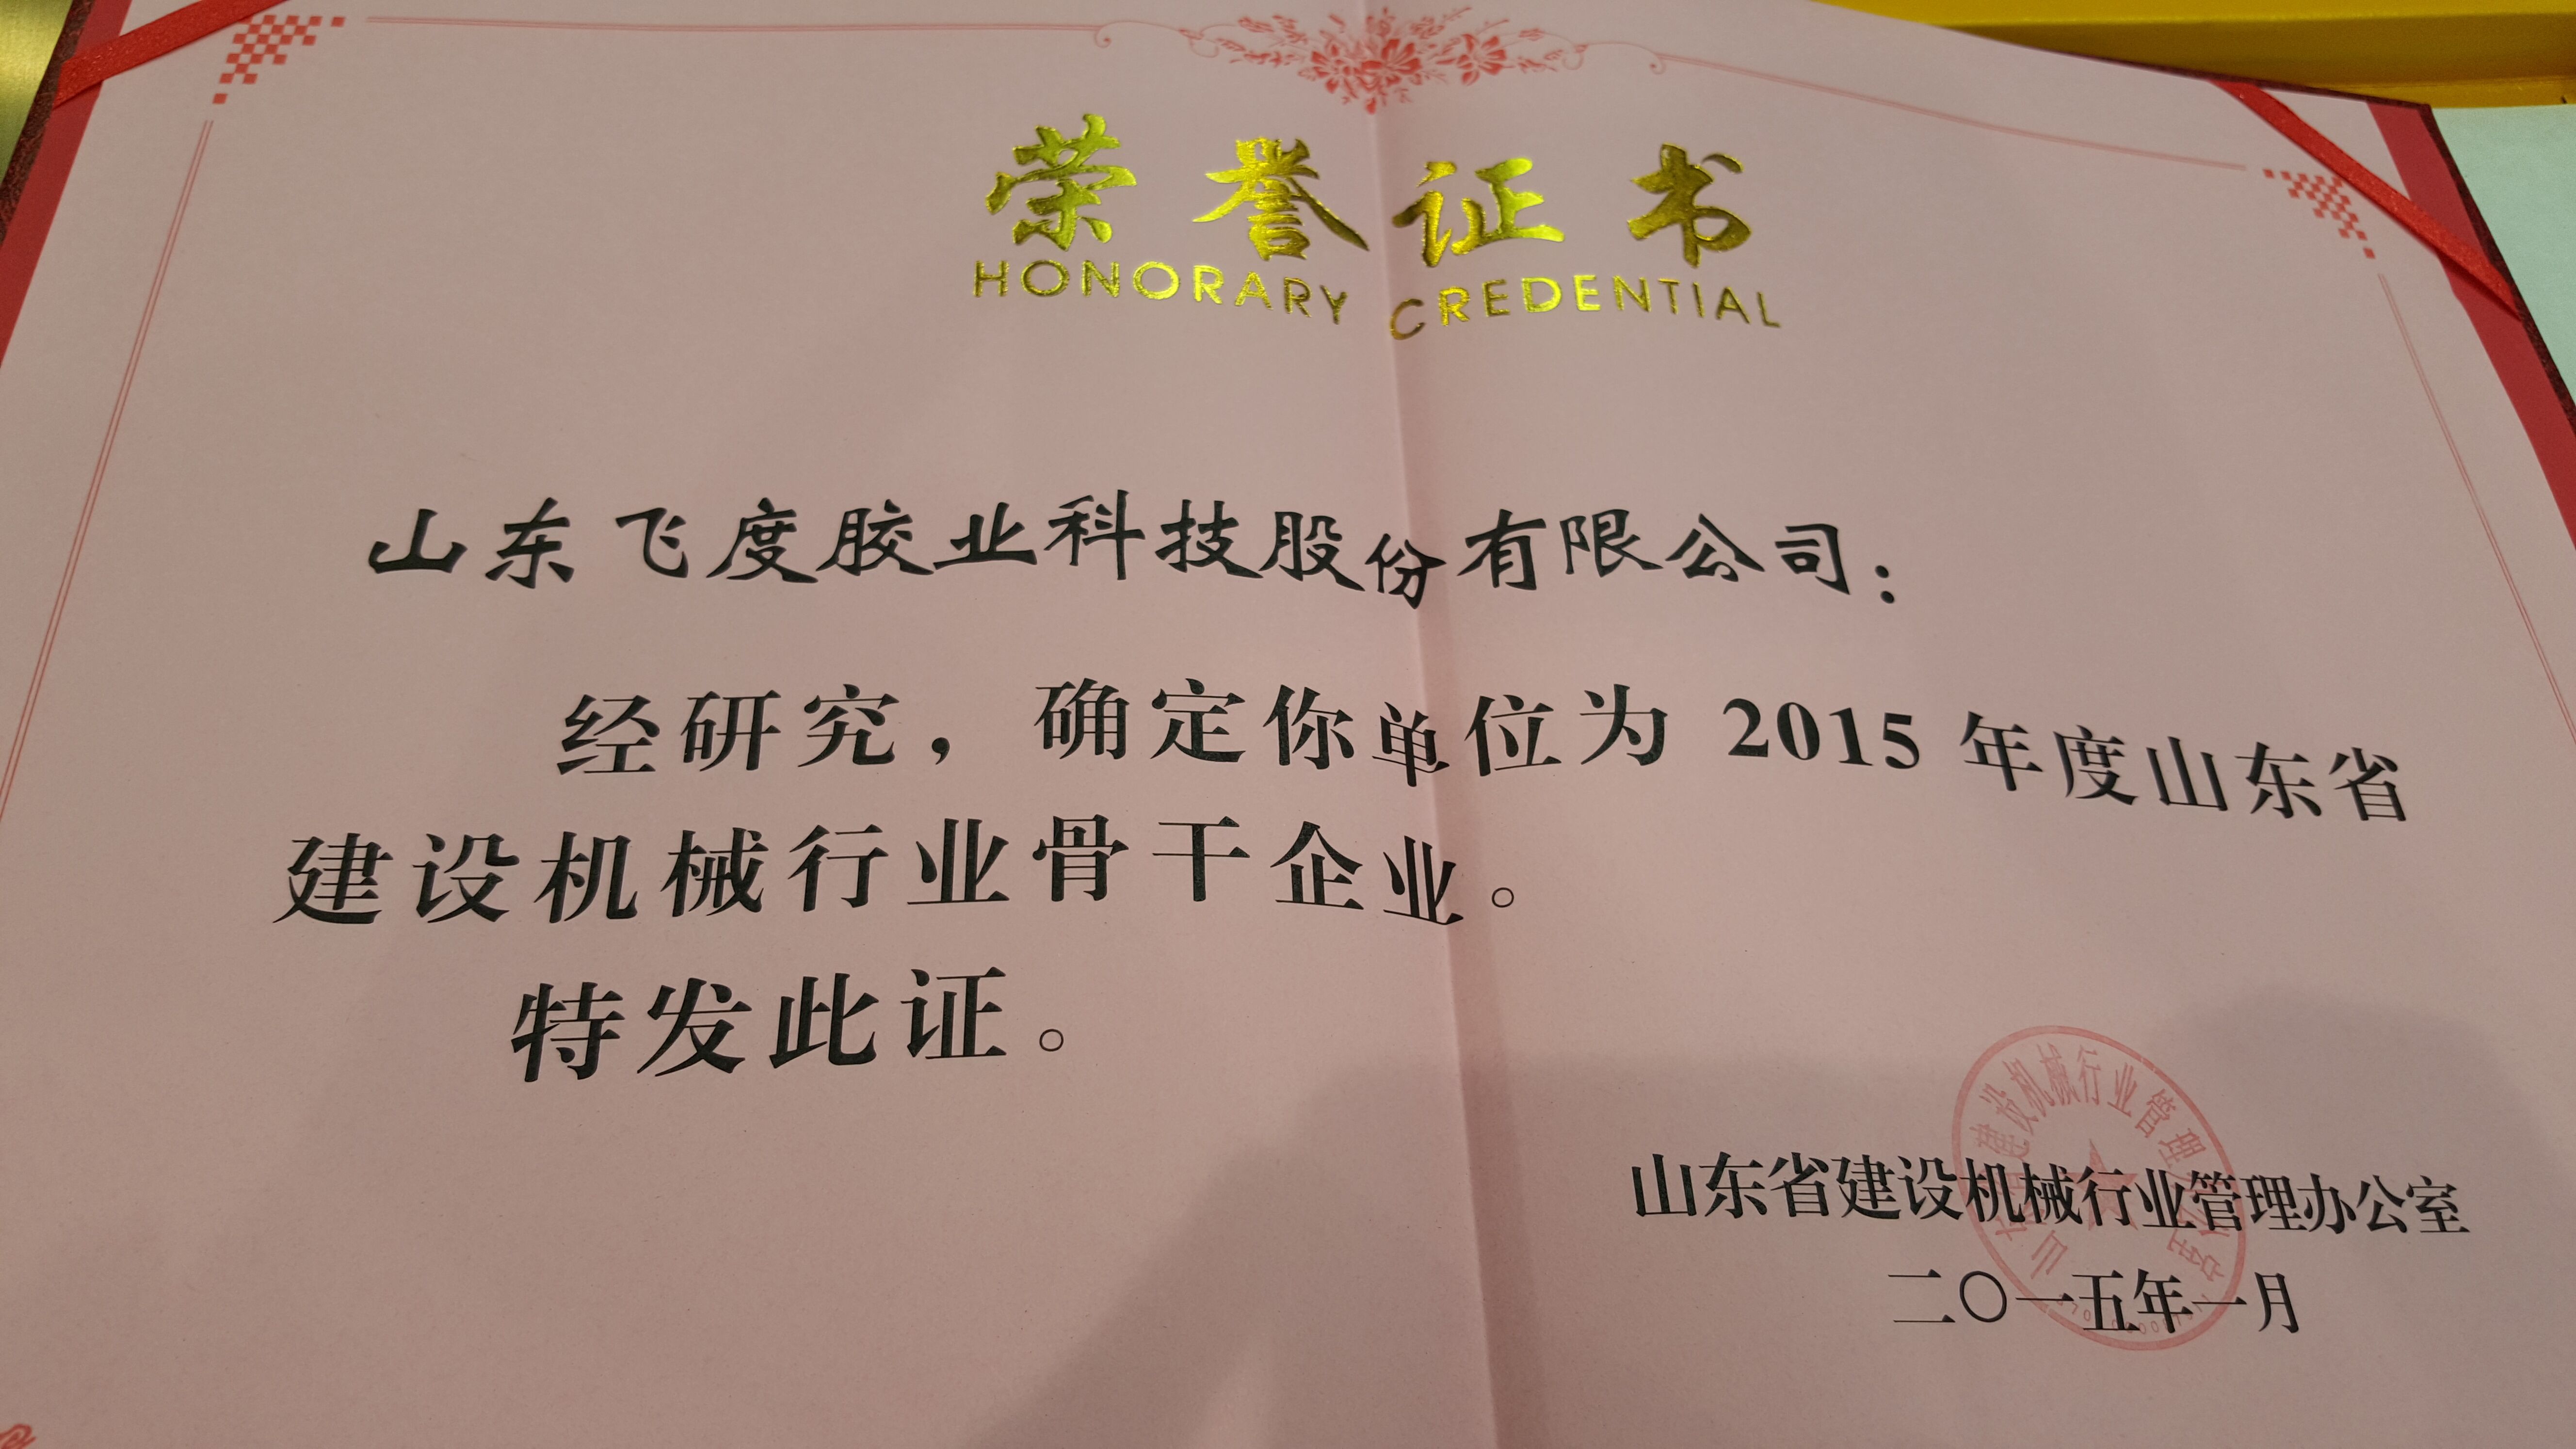 荣誉证书
HONORARY CREDENTIAL
山东飞度胶业科技股份有限公司：
经研究，确定你单位为 2015 年度山东省
建设机械行业骨干企业。
特发此证。
山东省建设机械行业管理办公室
二〇一五年一月
山东省建设机械行业管理办公室